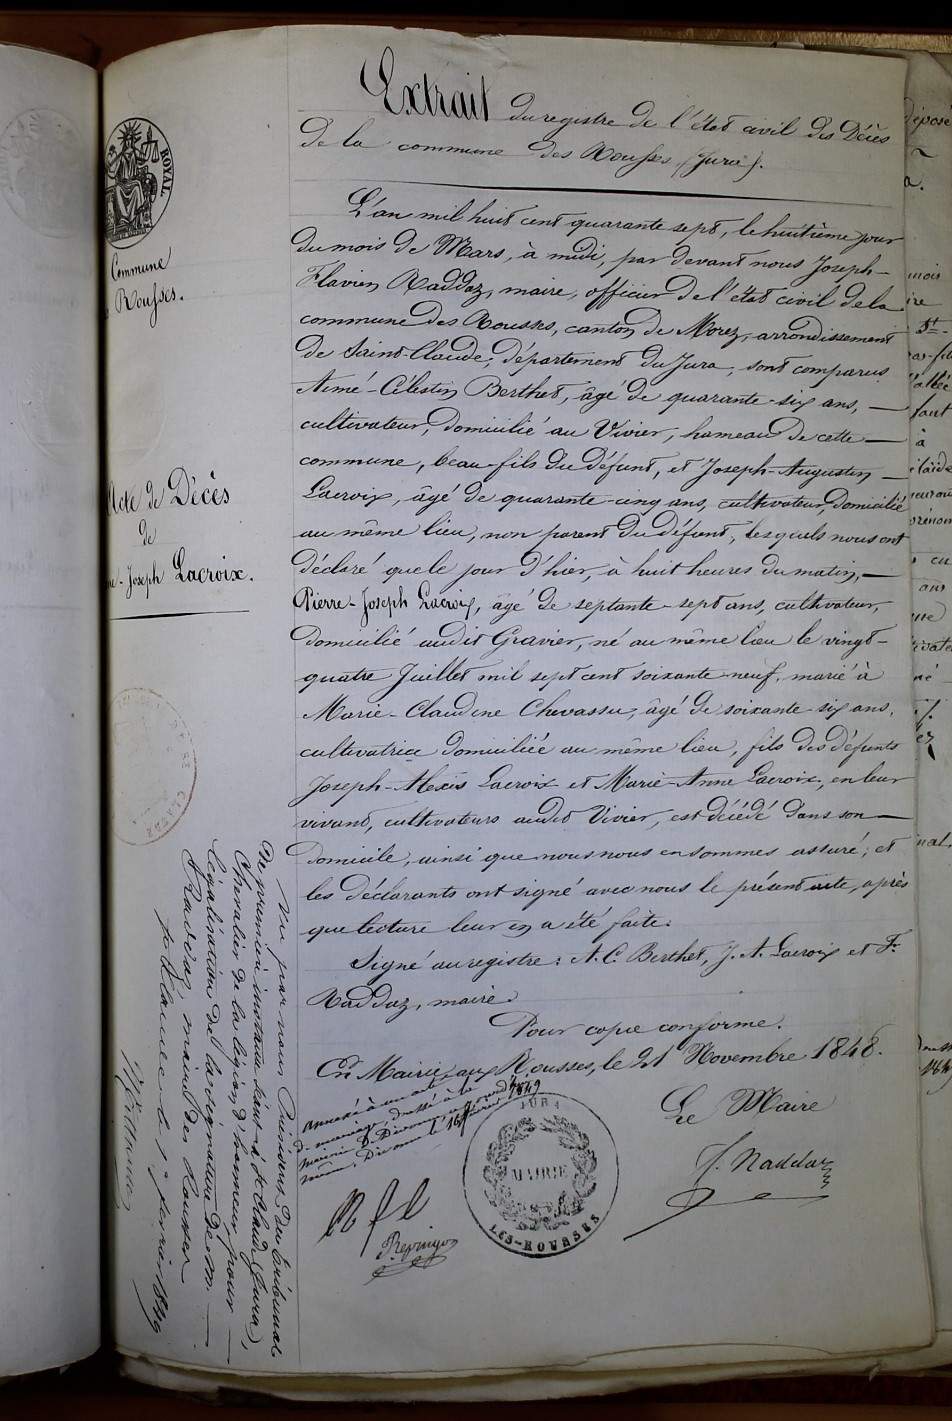 Extrait du registre de l'état civil des Décès
de la commune des Rousses (Jura).
ROYAL
Commune
Rousses.
Acte de Décès
de
Joseph Lacroix.
L'an mil huit cent quarante sept, le huitième jour
du mois de Mars, à midi, par devant nous Joseph-
Flavien Raddaz, maire, officier de l'état civil de la
commune des Rousses, canton de Morez, arrondissement
de Saint-Claude, département du Jura, sont comparus
Aimé-Célestin Berthet, âgé de quarante-six ans, —
cultivateur, domicilié au Vivier, hameau de cette —
commune, beau-fils du défunt, et Joseph-Augustin —
Lacroix, âgé de quarante-cinq ans, cultivateur, domicilié
au même lieu, non parent du défunt, lesquels nous ont
déclaré que le jour d'hier, à huit heures du matin, —
Pierre-Joseph Lacroix, âgé de septante-sept ans, cultivateur,
domicilié audit Gravier, né au même lieu le vingt-
quatre Juillet mil sept cent soixante-neuf, marié à
Marie-Claudine Chevassu, âgé de soixante-six ans,
cultivatrice domiciliée au même lieu, fils des défunts
Joseph-Alexis Lacroix et Marie-Anne Lacroix, en leur
vivant, cultivateurs audit Vivier, est décédé dans son —
domicile, ainsi que nous nous en sommes assuré; et
les déclarants ont signé avec nous le présent acte, après
que lecture leur en a été faite.
Signé au registre: A. C. Berthet, J. A. Lacroix et F.
Raddaz, maire.
Pour copie conforme.
En Mairie, aux Rousses, le 21 Novembre 1848.
Le Maire
F. Raddaz
annexé à un acte
de mariage, dressé à la
mairie 1849
même 16 février
JURA
MAIRIE
LES-ROUSSES
Vu par nous Président du tribunal
de première instance séant à St Claude (Jura),
Chevalier de la légion d'honneur, pour —
légalisation de la signature de M. —
Raddaz, maire des Rousses
St Claude le 1er février 1849